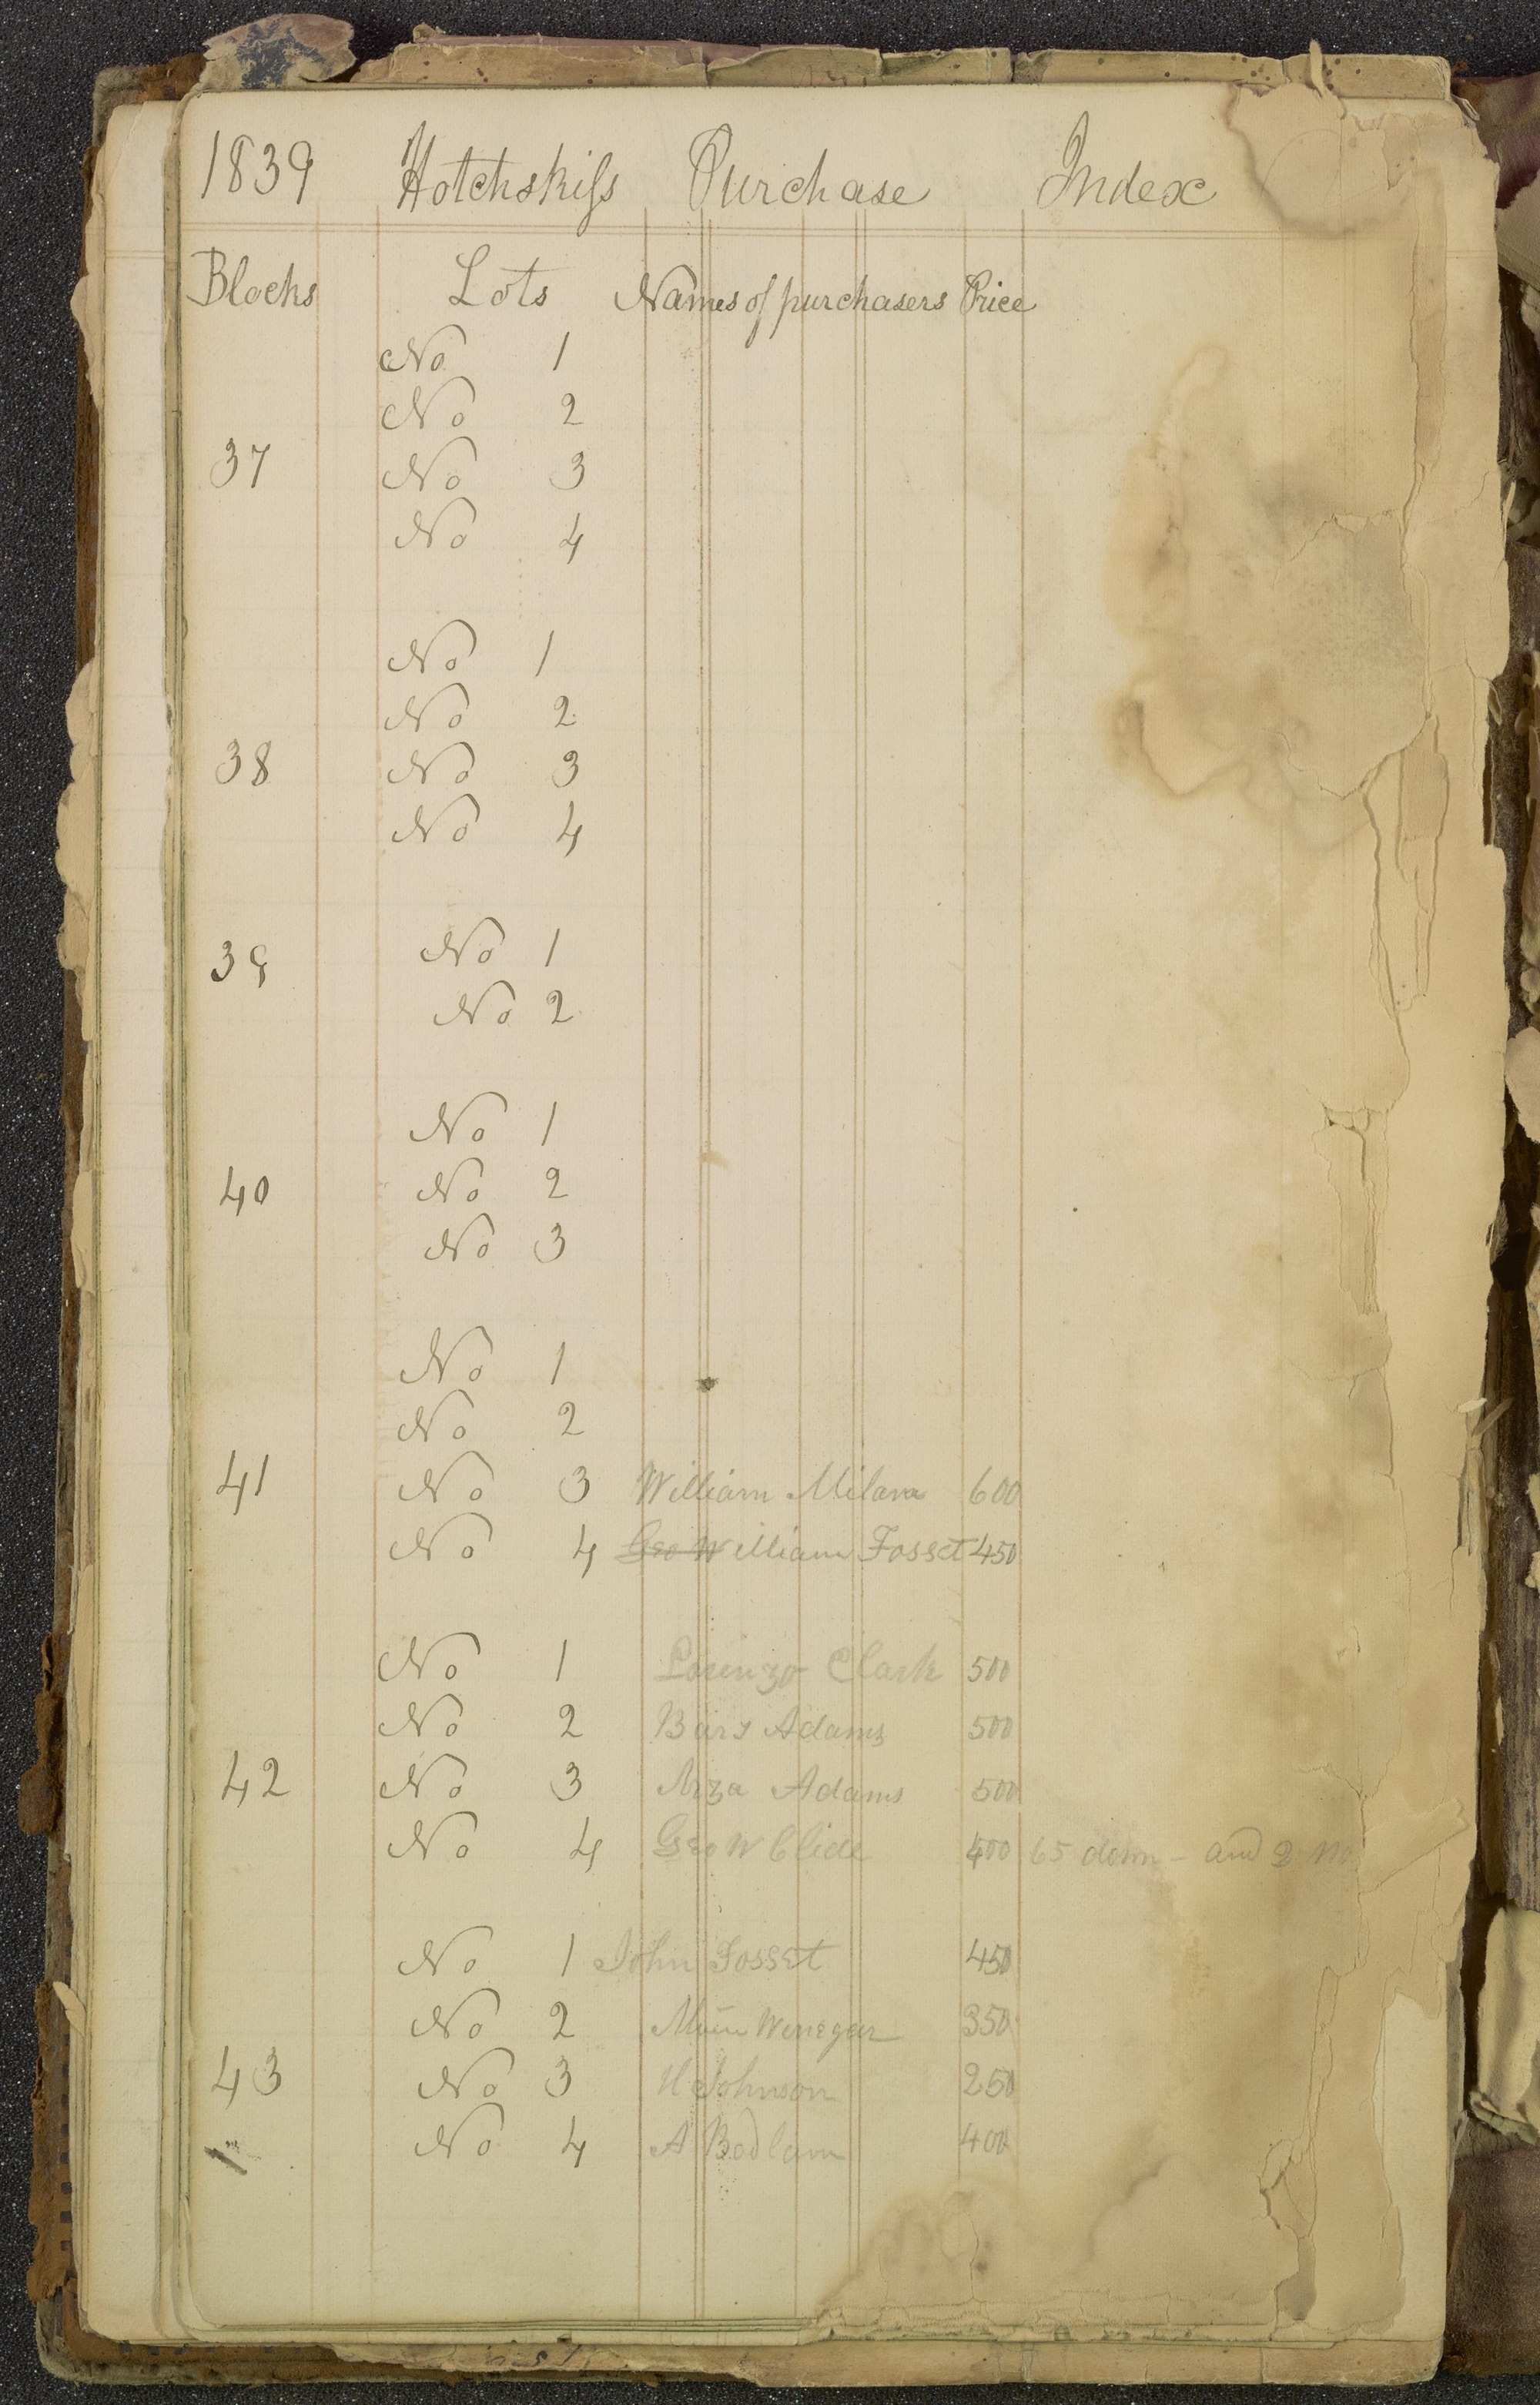 1839 Hotchskiſs Purchase Index
Blocks Lots Names of purchasers Price
No 1
No 2
37 No 3
No 4
No 1
No 2
38 No 3
No 4
39 No 1
No 2
No 1
40 No 2
No 3
No 1
No 2
41 No 3 William Milam 600
No 4 Geo William Fosset 450
No 1 Lorenzo Clark 500
No 2 Barz Adams 500
42 No 3 Arza Adams 500
No 4 Geo W Clide 400 65 down - and 2
No 1 John Fosset 450
No 2 Winegar 350
43 No 3 H Johnson 250
No 4 A Badlam 400